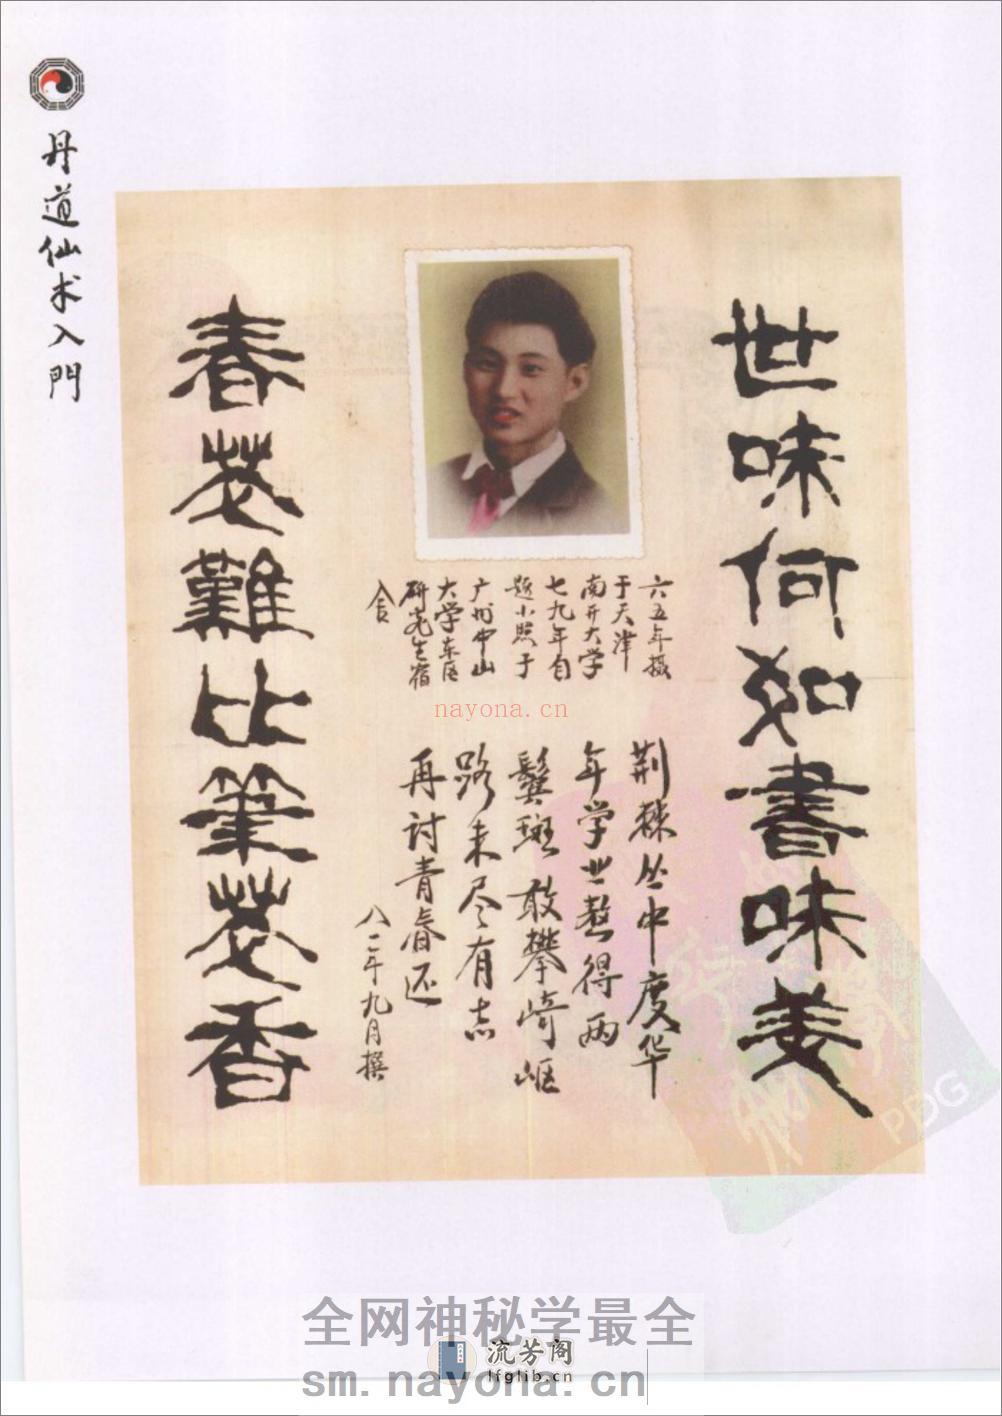 丹道仙术入門
世味何如書味美
春花難比筆花香
六五年摄
于天津
南开大学
七九年自
题小照于
广州中山
大学东区
研究生宿
舍
荆棘丛中度华
年学业熬得两
鬓斑敢攀崎岖
路未尽有志
再讨青春还
八二年九月撰
nayona.cn
PDG
全网神秘学最全
流芳阁
lfglib.cn
sm.nayona.cn